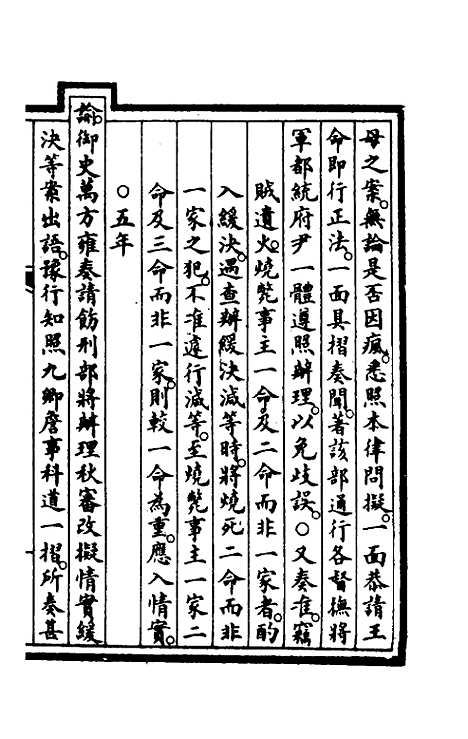 母之案。無論是否因瘋。悉照本律問擬。一面恭請王
命即行正法。一面具摺奏聞。著該部通行各督撫將
軍都統府尹一體遵照辦理。以免歧誤。○又奏准。竊
賊遺火。燒斃事主一命及二命而非一家者。酌
入緩決。遇查辦緩決減等時。將燒死二命而非
一家之犯。不准遽行減等。至燒斃事主一家二
命及三命而非一家。則較一命為重。應入情實。
○五年
諭。御史萬方雍奏請飭刑部將辦理秋審改擬情實緩
決等案出語。豫行知照九卿詹事科道一摺。所奏甚